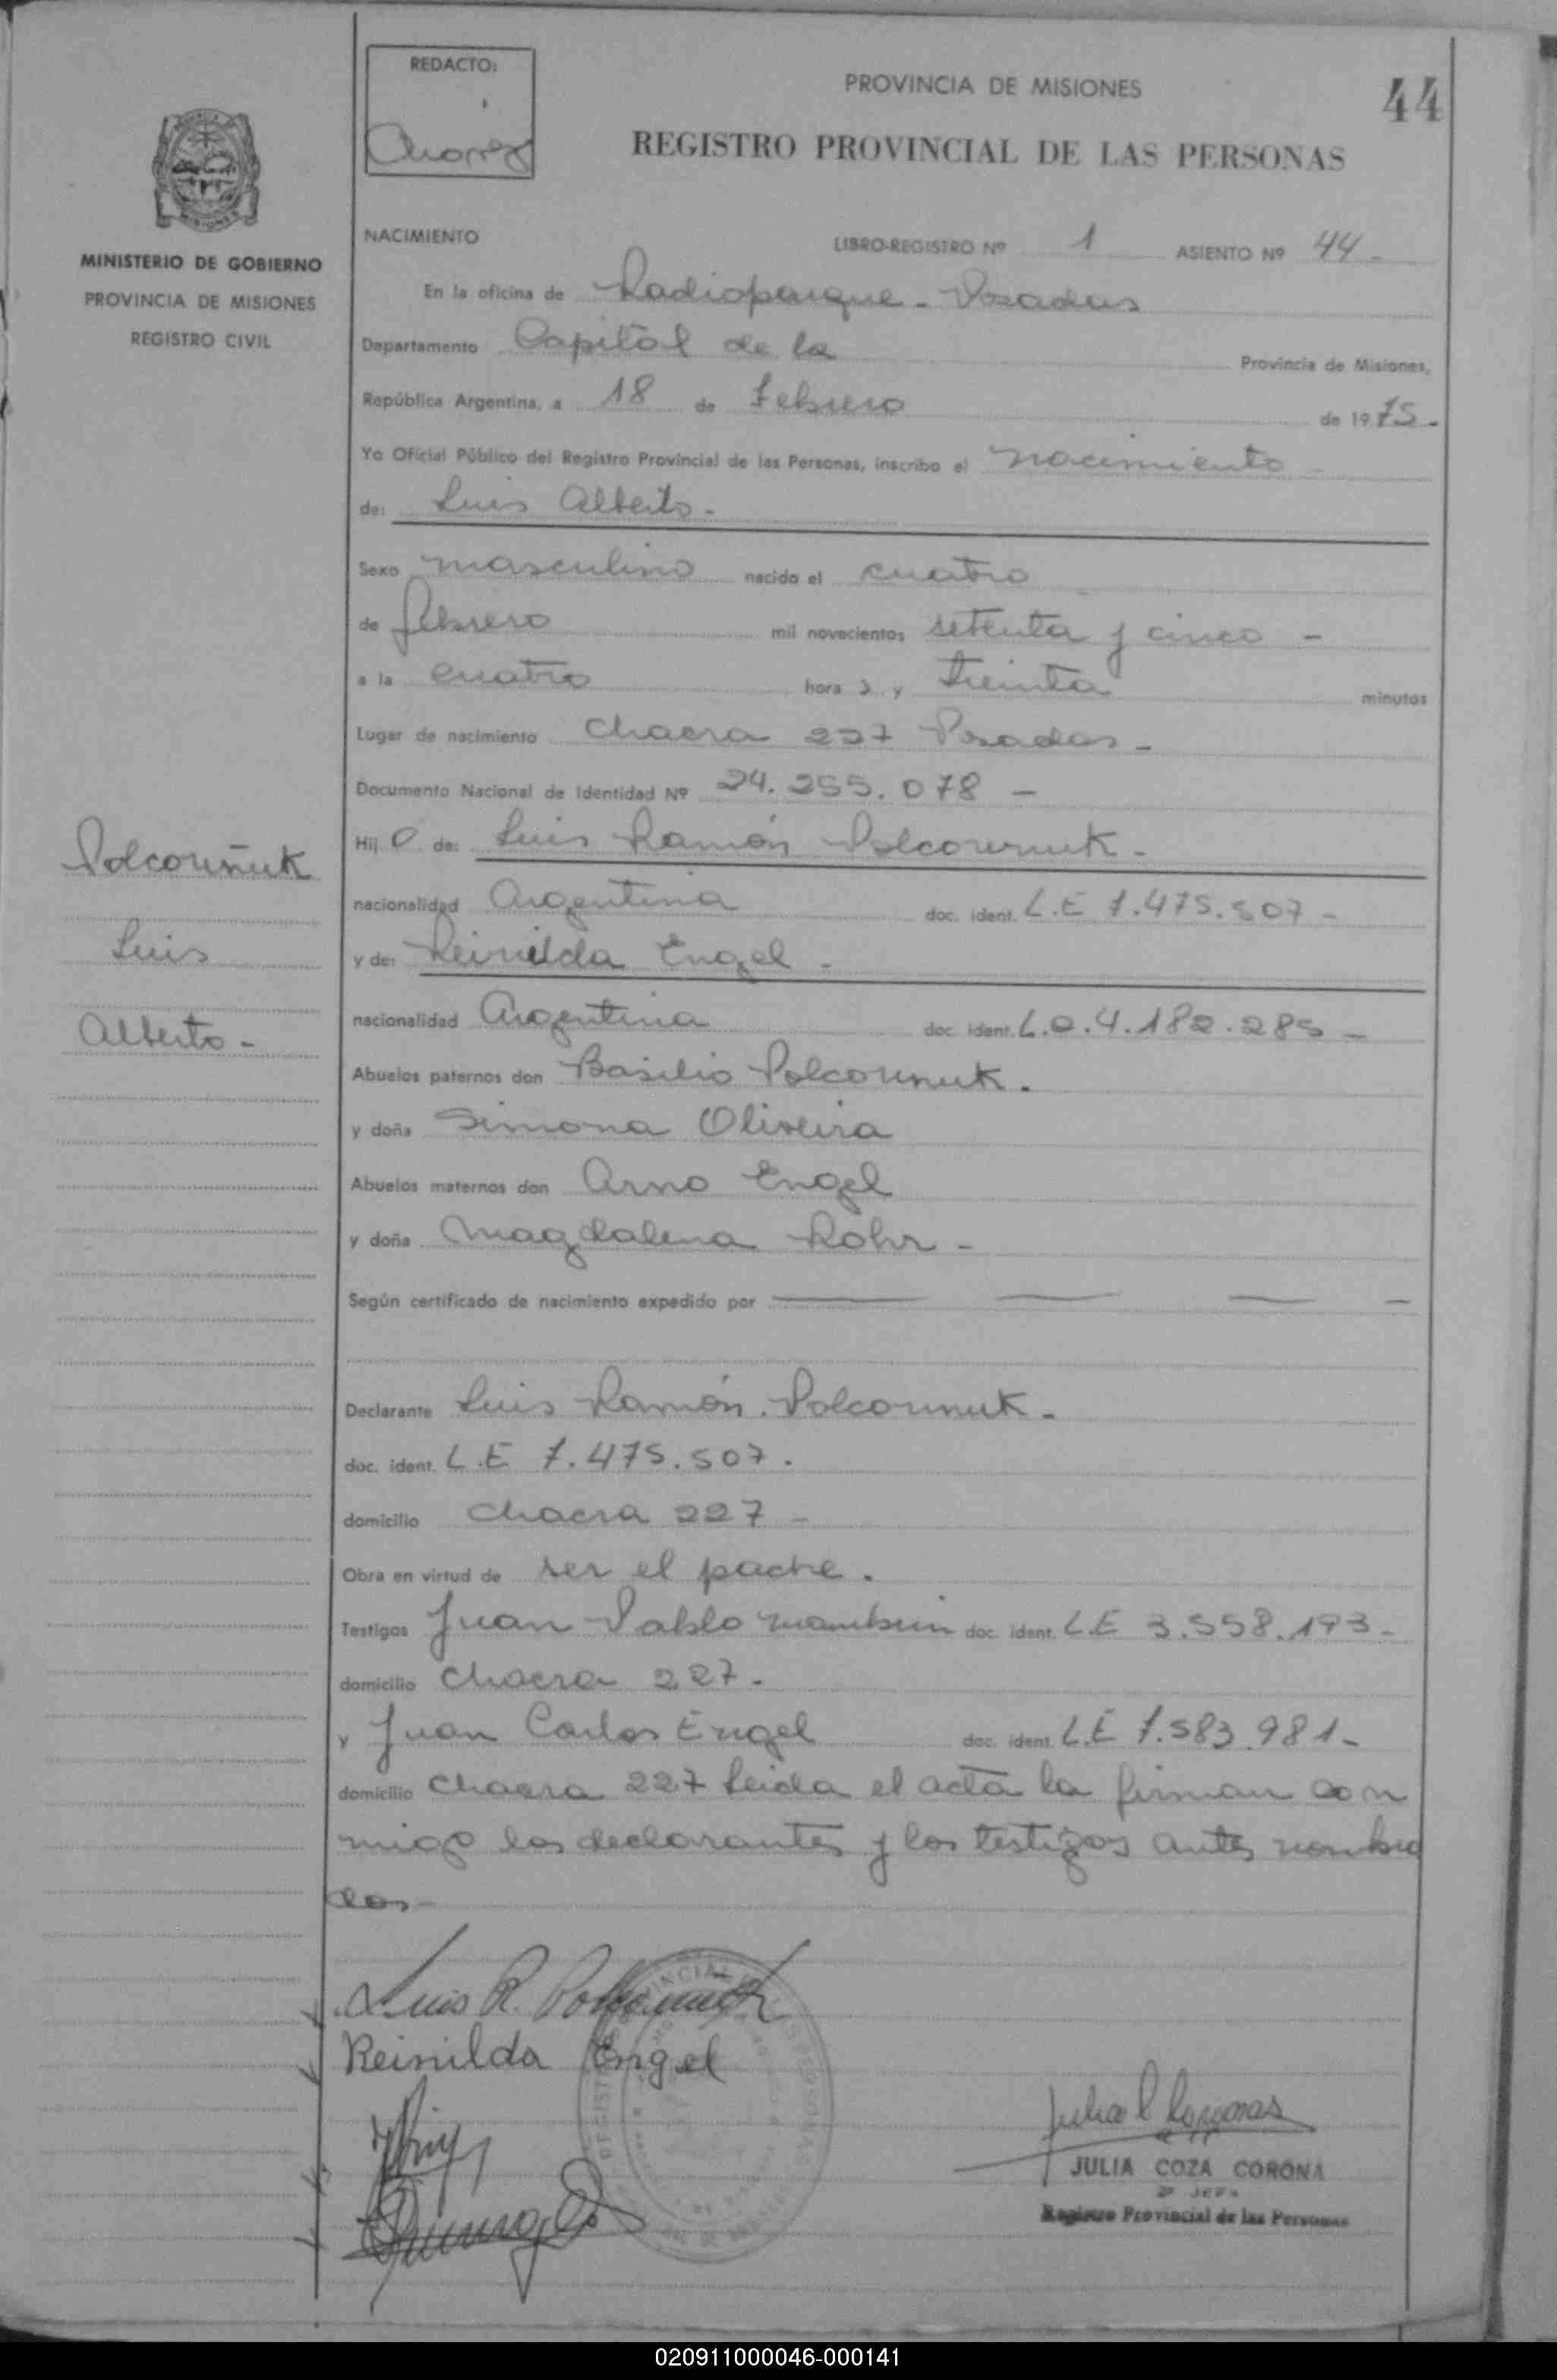 REDACTO:
PROVINCIA DE MISIONES
44
REGISTRO PROVINCIAL DE LAS PERSONAS
MISIONES
MINISTERIO DE GOBIERNO
PROVINCIA DE MISIONES
REGISTRO CIVIL
NACIMIENTO LIBRO-REGISTRO Nº 1 ASIENTO Nº 44-
En la oficina de Radioparque - Posadas
Departamento Capital de la Provincia de Misiones,
República Argentina, a 18 de Febrero de 1975-
Yo Oficial Público del Registro Provincial de las Personas, inscribo el nacimiento -
de: Luis Alberto -
Sexo masculino nacido el cuatro
de febrero mil novecientos setenta y cinco -
a la cuatro hora s y treinta minutos
Lugar de nacimiento Chacra 227 Posadas -
Documento Nacional de Identidad Nº 24.255.078 -
Hij o de: Luis Ramón Polcorñuk -
nacionalidad Argentina doc. ident. L.E 7.475.507 -
y de: Reinilda Engel -
nacionalidad Argentina doc. ident. L.C. 4.182.285 -
Abuelos paternos don Basilio Polcorñuk.
y doña Simona Oliveira
Abuelos maternos don Arno Engel
y doña Magdalena Rohr -
Según certificado de nacimiento expedido por
Declarante Luis Ramón Polcorñuk -
doc. ident. L.E 7.475.507.
domicilio Chacra 227 -
Obra en virtud de ser el padre.
Testigos Juan Pablo doc. ident. L.E 3.558.193 -
domicilio Chacra 227 -
y Juan Carlos Engel doc. ident. L.E 7.583.981 -
domicilio Chacra 227 Leida el acta la firman con
migo los declarantes y los testigos antes nombra
dos -
Polcorñuk
Luis
Alberto -
Luis R. Polcorñuk
Reinilda Engel
JULIA COZA CORONA
2º JEFA
Registro Provincial de las Personas
020911000046-000141